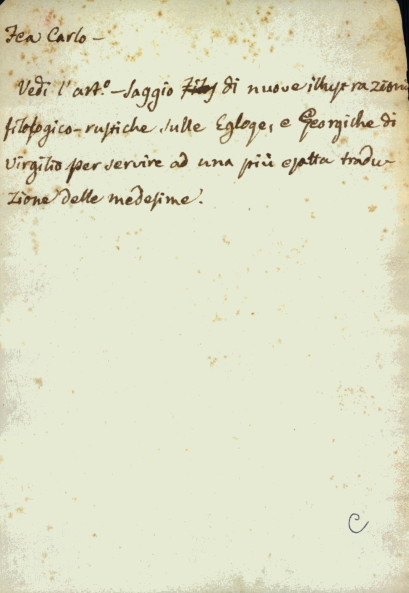 Fea Carlo -
Vedi l'art.º - Saggio di nuove illustrazioni
filologico-rustiche sulle Egloge, e Georgiche di
Virgilio per servire ad una più esatta tradu-
zione delle medesime.
C